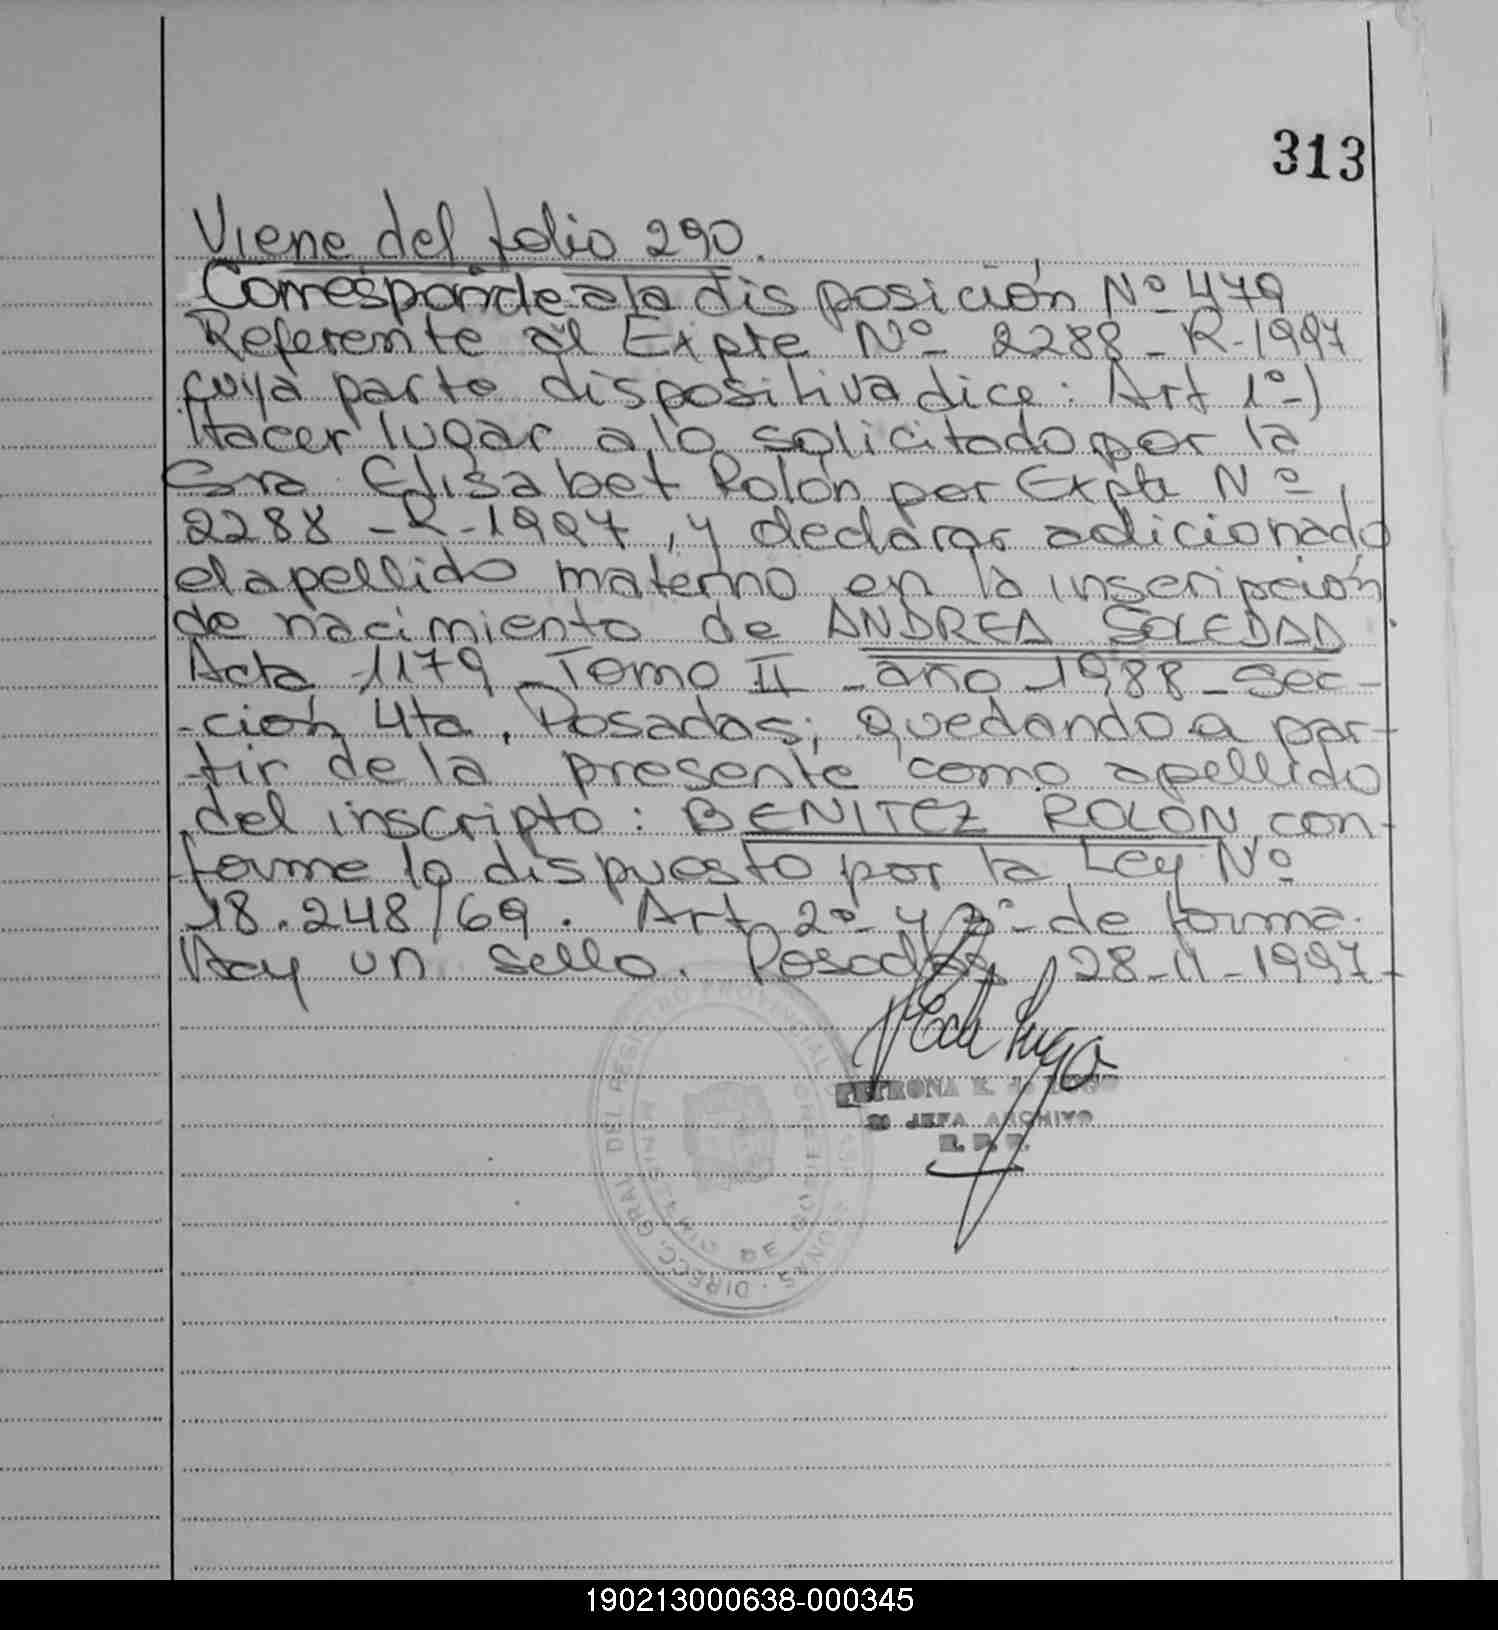 313
Viene del folio 290.
Corresponde a la disposición Nº 479
Referente al Expte Nº 2288-R-1997
cuya parte dispositiva dice: Art 1º-)
Hacer lugar a lo solicitado por la
Sra Elisabet Rolón por Expte Nº
2288-R-1997, y declarar adicionado
el apellido materno en la inscripción
de nacimiento de ANDREA SOLEDAD
Acta 1179-Tomo II-año 1988-Sec-
-ción 4ta, Posadas; quedando a par-
tir de la presente como apellido
del inscripto: BENITEZ ROLON, con-
forme lo dispuesto por la Ley Nº
18.248/69. Art 2º y 3º-de forma.
Hay un sello. Posadas, 28-11-1997-
PETRONA E. de LUGO
JEFA ARCHIVO
R. P. P.
DIRECC. GRAL DEL REGISTRO PROVINCIAL
DE
190213000638-000345